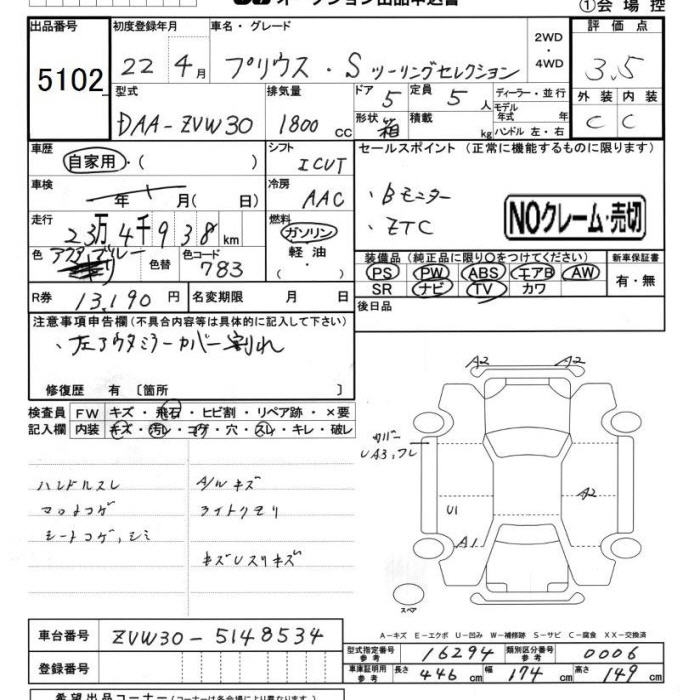 オークション出品申込書
①会場控
出品番号 5102
初度登録年月 22年4月
車名・グレード プリウス・Sツーリングセレクション
2WD・4WD
評価点 3.5
型式 DAA-ZVW30
排気量 1800cc
ドア 5 定員 5人
形状 箱 積載 kg
ディーラー・並行
モデル年式 年
ハンドル 左・右
外装 内装
C C
車歴 自家用・( )
シフト ICVT
セールスポイント (正常に機能するものに限ります)
車検 年 月( 日)
冷房 AAC
・Bモニター
・ETC
NOクレーム・売切
走行 23万4千938km
燃料 ガソリン 軽油・( )
色 色替 色コード 783
装備品 (純正品に限り○をつけてください)
PS PW ABS エアB AW
SR ナビ TV カワ
新車保証書 有・無
R券 13,190円 名変期限 月 日
後日品
注意事項申告欄 (不具合内容等は具体的に記入して下さい)
・左ドアミラーカバー割れ
修復歴 有 〔箇所 〕
検査員記入欄 FW キズ・飛石・ヒビ割・リペア跡・×要
内装 キズ・汚れ・コゲ・穴・スレ・キレ・破レ
ハンドルスレ
マットコゲ
シートコゲ,シミ
A/Wキズ
ライトクモリ
キズUスリキズ
A2 A2
カバー
UA3,ワレ
U1
A2
A1
スペア
A-キズ E-エクボ U-凹み W-補修跡 S-サビ C-腐食 XX-交換済
車台番号 ZVW30-5148534
登録番号
型式指定番号 参考 16294 類別区分番号 参考 0006
車庫証明用 参考 長さ 446cm 幅 174cm 高さ 149cm
希望出品コーナー